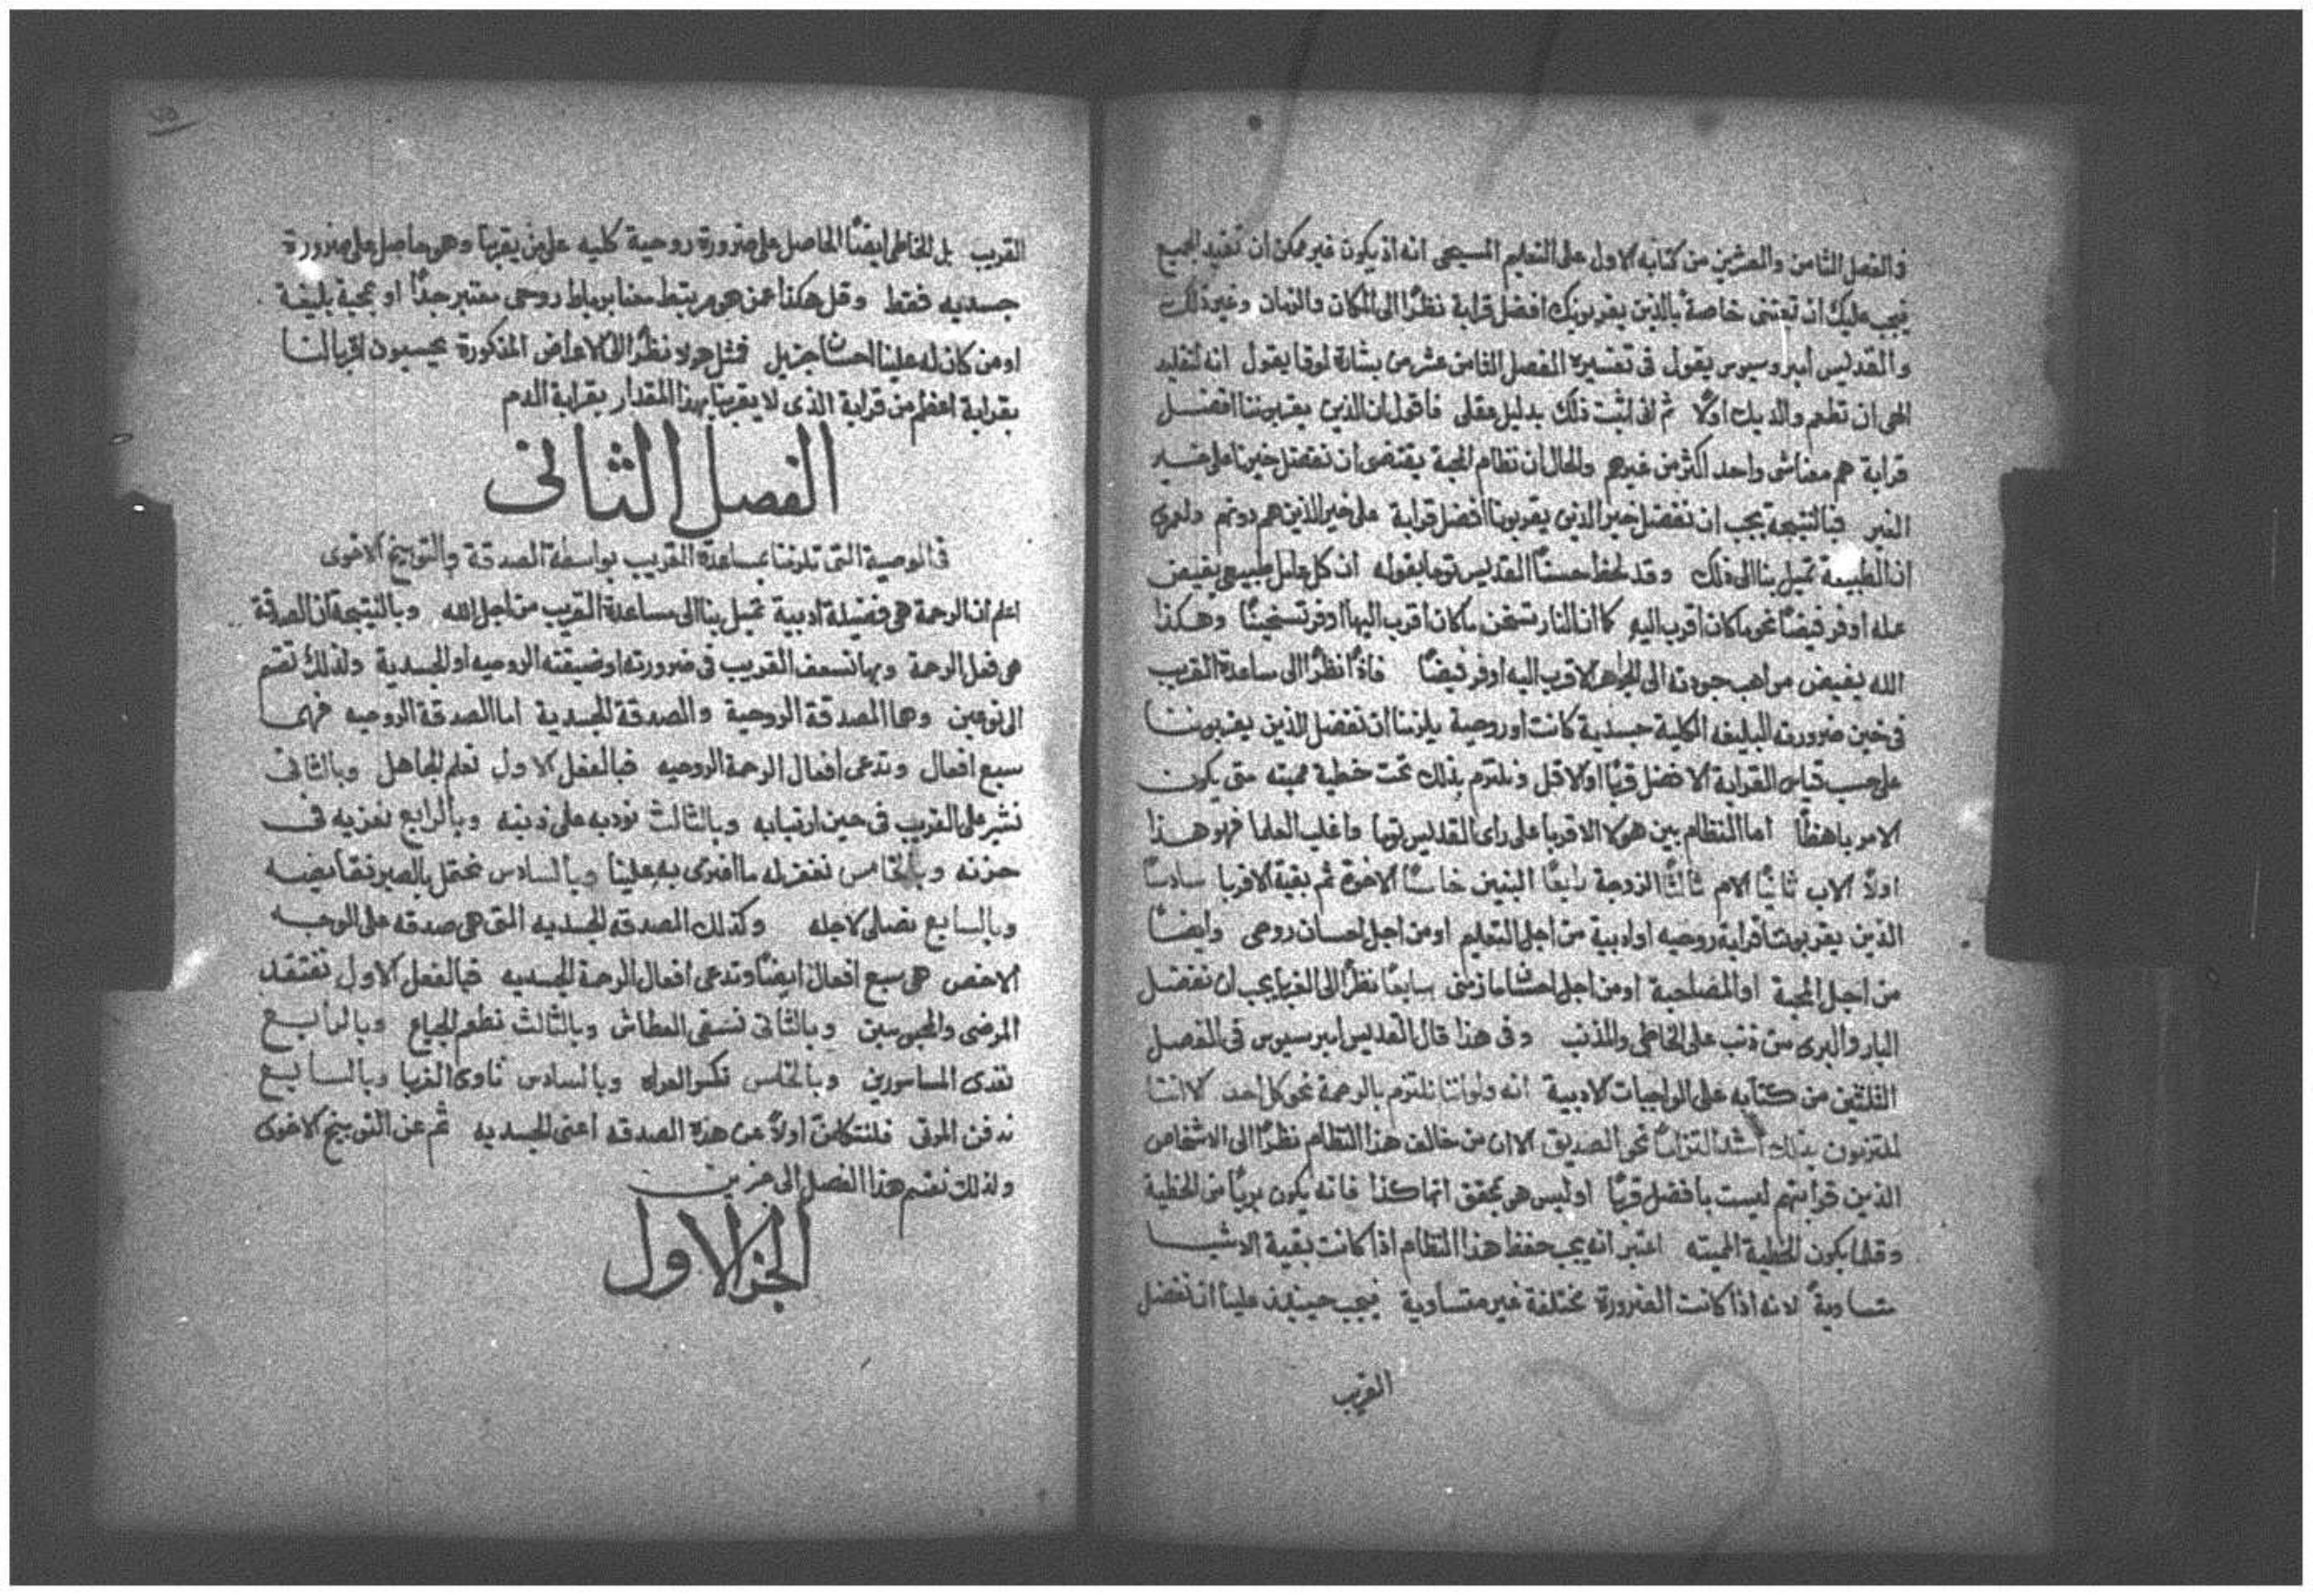 في الفصل الثامن والعشرين من كتابه الاول على التعليم المسيحي انه اذ يكون غير ممكن ان تفيد الجميع
فيجب عليك ان تعتني خاصة بالذين يقربونك افضل قرابة نظرًا الى المكان والزمان وغير ذلك
والقديس امبروسيوس يقول في تفسيره الفصل الثامن عشر من بشارة لوقا يقول انه
ان تطعم والديك اولًا ثم اني اثبت ذلك بدليل عقلي فاقول ان الذين يقربوننا افضل
قرابة هم معنا شي واحد اكثر من غيرهم والحال ان نظام المحبة يقتضي ان نفضل خيرنا على خير
الغير فبالنتيجة يجب ان نفضل خير الذين يقربونا افضل قرابة على خير الذين هم دونهم ولعمري
ان الطبيعة تميل بنا الى ذلك وقد لحظ حسنًا القديس توما بقوله ان كل فاعل طبيعي يفيض
عمله اوفر فيضًا نحو ما كان اقرب اليه كما ان النار تسخن ما كان اقرب اليها اوفر تسخينًا وهكذا
الله يفيض مواهب جودته الى الجواهر الاقرب اليه اوفر فيضًا فاذًا نظرًا الى مساعدة القريب
في حين ضرورته البليغه الكلية جسدية كانت او روحية يلزمنا ان نفضل الذين يقربوننا
على حسب قياس القرابة الافضل قربًا او الاقل ونلتزم بذلك تحت خطية مميته متى يكون
الامر باهظًا اما النظام بين هولا الاقربا على راى القديس توما واغلب العلما فهو هذا
اولًا الاب ثانيًا الام ثالثًا الزوجة رابعًا البنين خامسًا الاخوة ثم بقية الاقربا سادسًا
الذين يقربوننا قرابة روحيه او ادبية من اجل التعليم او من اجل احسان روحي وايضًا
من اجل المحبة او المصلحية او من اجل احسان ما زمني سابعًا نظرًا الى الغربا يجب ان نفضل
البار والبرى من ذنب على الخاطي والمذنب وفي هذا قال القديس امبرسيوس في الفصل
الثلثين من كتابه على الواجبات الادبية انه ولو اننا نلتزم بالرحمة نحو كل احد الا اننا
ملتزمون بذلك اشد التزامًا نحو الصديق الا ان من خالف هذا النظام نظرًا الى الاشخاص
الذين قرابتهم ليست بافضل قربًا او ليس هو بمحقق انها كذا فانه يكون بريًا من الخطية
وقلما يكون الخطية المميته اعتبر انه يجب حفظ هذا النظام اذا كانت بقية الاشيا
متساوية لانه اذا كانت الضرورة مختلفة غير متساوية فيجب حينيذ علينا ان نفضل
القريب
٧٥
القريب بل الخاطى ايضًا الحاصل على ضرورة روحية كليه على من يقربنا وهو حاصل على ضرورة
جسديه فقط وقل هكذا عمن هو مرتبط معنا برباط روحي معتبر جدًا او بمحبة بليغة
او من كان له علينا احسان جزيل فمثل هولا نظرًا الى الاعراض المذكورة يحسبون اقربا لنا
بقرابة اعظم من قرابة الذى لا يقربنا بهذا المقدار بقرابة الدم
الفصل الثاني
في الوصية التي تلزمنا بمساعدة القريب بواسطة الصدقة والتوبيخ الاخوى
اعلم ان الرحمة هي فضيلة ادبية تميل بنا الى مساعدة القريب من اجل الله وبالنتيجة ان الصدقة
هي فعل الرحمة وبها نسعف القريب في ضرورته او ضيقته الروحيه او الجسدية ولذلك تقسم
الى نوعين وهما الصدقة الروحية والصدقة الجسدية اما الصدقة الروحيه فهي
سبع افعال وتدعى افعال الرحمة الروحيه فبالفعل الاول نعلم الجاهل وبالثاني
نشير على القريب في حين ارتيابه وبالثالث نودبه على ذنبه وبالرابع نعزيه في
حزنه وبالخامس نغفر له ما افترى به علينا وبالسادس نحتمل بالصبر نقايضه
وبالسابع نصلى لاجله وكذلك الصدقه الجسديه التي هي صدقه على الوجه
الاخص هي سبع افعال ايضًا وتدعى افعال الرحمة الجسديه فبالفعل الاول نفتقد
المرضى والمحبوسين وبالثاني نسقى العطاش وبالثالث نطعم الجياع وبالرابع
نفدى الماسورين وبالخامس نكسو العراه وبالسادس ناوى الغربا وبالسابع
ندفن الموتى فلنتكلمن اولًا عن هذه الصدقه اعنى الجسديه ثم عن التوبيخ الاخوى
ولذلك نقسم هذا الفصل الى جزين
الجز الاول